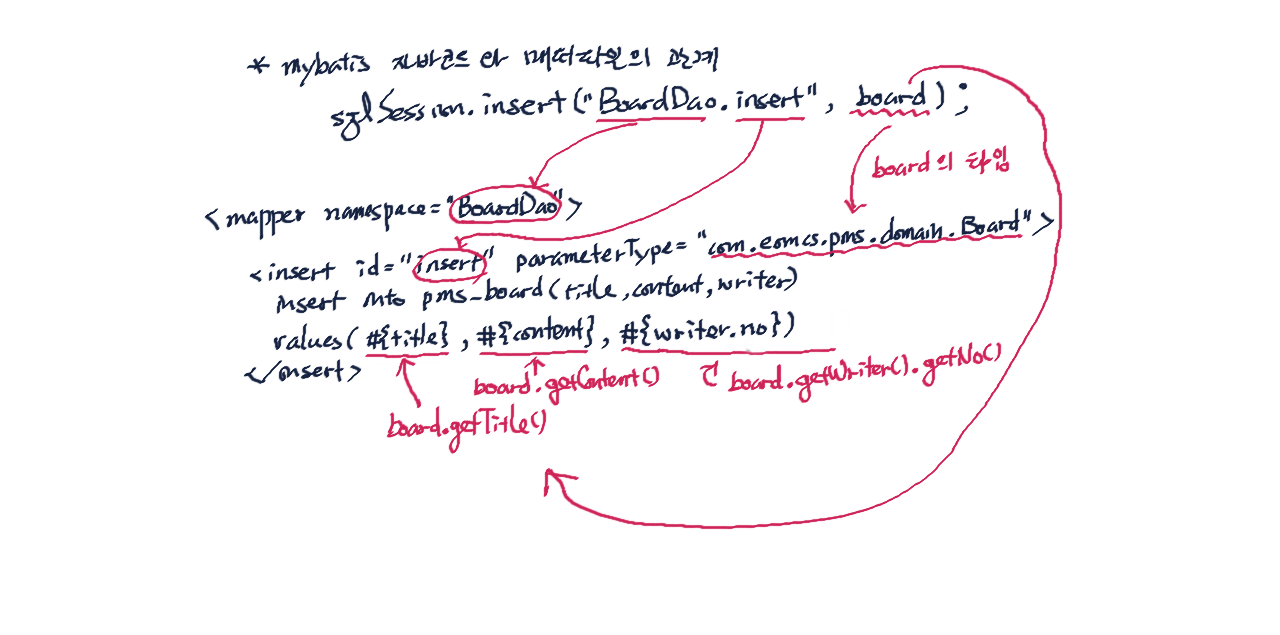 * mybatis 자바코드와 매퍼파일의 관계
sqlSession.insert("BoardDao.insert", board);
board의 타입
<mapper namespace="BoardDao">
<insert id="insert" parameterType="com.eomcs.pms.domain.Board">
insert into pms_board(title,content,writer)
values(#{title}, #{content}, #{writer.no})
</insert>
board.getContent()
board.getWriter().getNo()
board.getTitle()